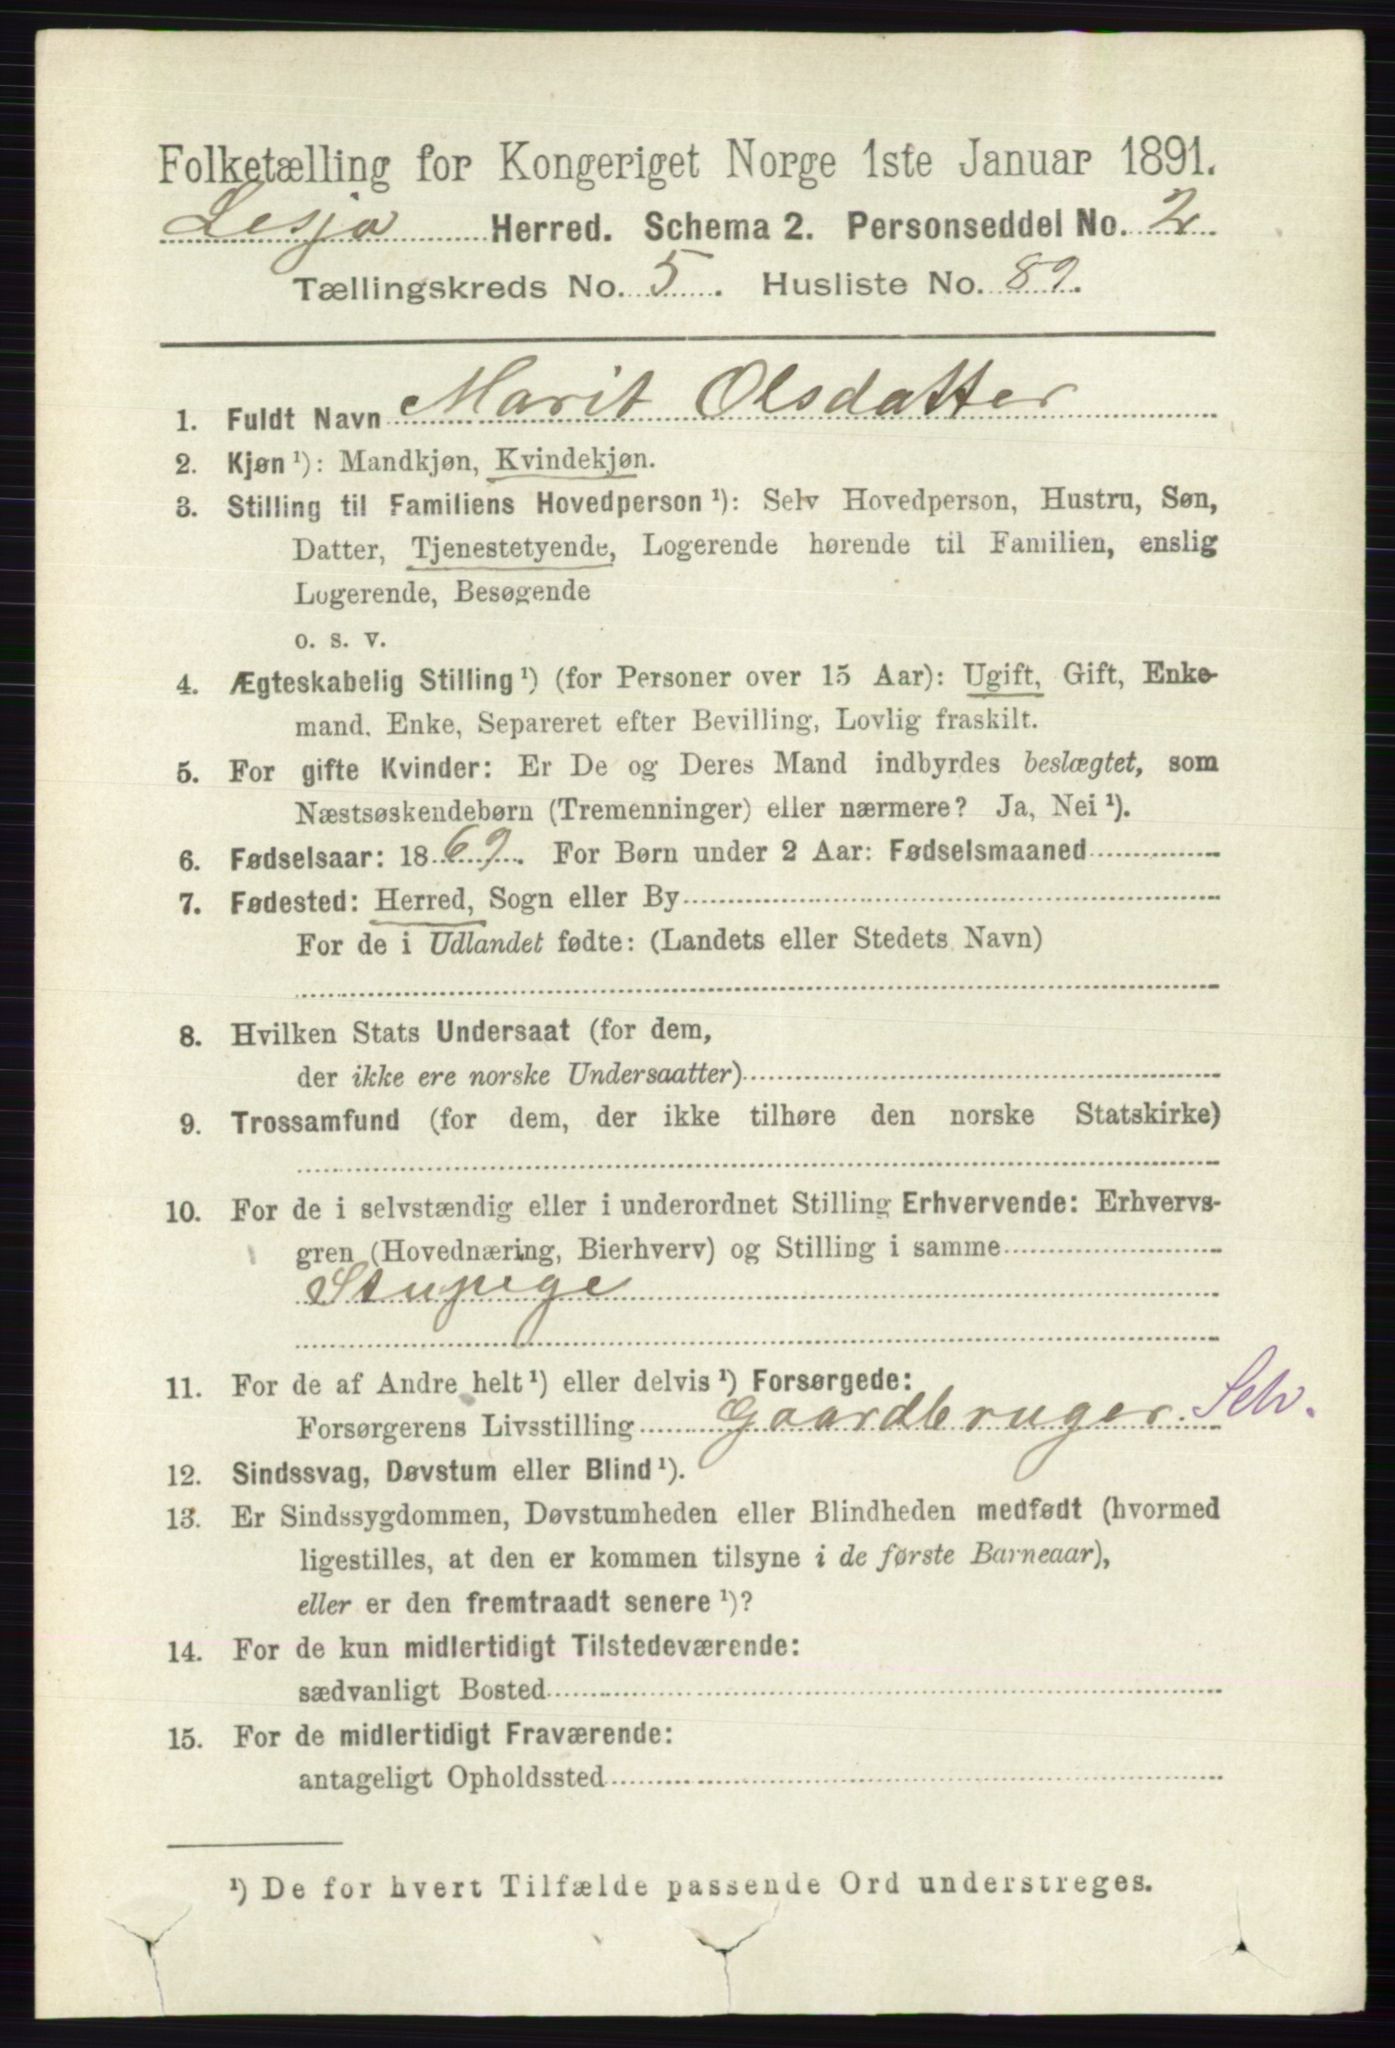 Folketælling for Kongeriget Norge 1ste Januar 1891.
Lesja Herred. Schema 2. Personseddel No. 2.
Tællingskreds No. 5. Husliste No. 89.
1. Fuldt Navn Marit Olsdatter
2. Kjøn ¹): Mandkjøn, Kvindekjøn.
3. Stilling til Familiens Hovedperson ¹): Selv Hovedperson, Hustru, Søn,
Datter, Tjenestetyende, Logerende hørende til Familien, enslig
Logerende, Besøgende
o. s. v.
4. Ægteskabelig Stilling ¹) (for Personer over 15 Aar): Ugift, Gift, Enke-
mand, Enke, Separeret efter Bevilling, Lovlig fraskilt.
5. For gifte Kvinder: Er De og Deres Mand indbyrdes beslægtet, som
Næstsøskendebørn (Tremenninger) eller nærmere? Ja, Nei ¹).
6. Fødselsaar: 1869. For Børn under 2 Aar: Fødselsmaaned
7. Fødested: Herred, Sogn eller By
For de i Udlandet fødte: (Landets eller Stedets Navn)
8. Hvilken Stats Undersaat (for dem,
der ikke ere norske Undersaatter)
9. Trossamfund (for dem, der ikke tilhøre den norske Statskirke)
10. For de i selvstændig eller i underordnet Stilling Erhvervende: Erhvervs-
gren (Hovednæring, Bierhverv) og Stilling i samme
Stupige
11. For de af Andre helt ¹) eller delvis ¹) Forsørgede:
Forsørgerens Livsstilling Gaardbruger. Selv.
12. Sindssvag, Døvstum eller Blind ¹).
13. Er Sindssygdommen, Døvstumheden eller Blindheden medfødt (hvormed
ligestilles, at den er kommen tilsyne i de første Barneaar),
eller er den fremtraadt senere ¹)?
14. For de kun midlertidigt Tilstedeværende:
sædvanligt Bosted
15. For de midlertidigt Fraværende:
antageligt Opholdssted
¹) De for hvert Tilfælde passende Ord understreges.